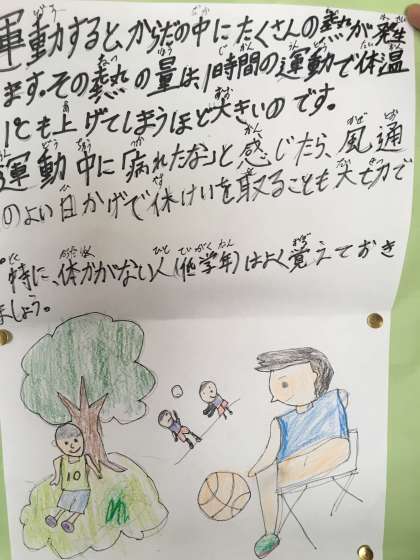 運動すると、からだの中にたくさんの熱が発生
ます。その熱の量は、1時間の運動で体温
1℃も上げてしまうほど大きいのです。
運動中に「疲れたな」と感じたら、風通
のよい日かげで休けいを取ることも大切で
。特に、体力がない人(低学年)はよく覚えておき
ましょう。
10